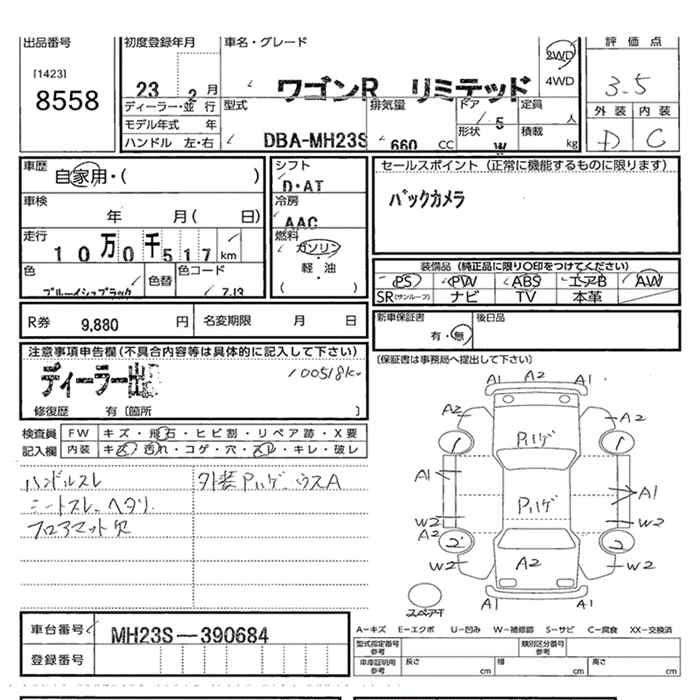 出品番号
[1423]
8558
初度登録年月
23 2月
車名・グレード
ワゴンR リミテッド
2WD
4WD
評価点
3.5
外装 内装
D C
ディーラー・並行
モデル年式 年
ハンドル 左・右
型式
DBA-MH23S
排気量
660 CC
ドア
5
形状
W
定員
人
積載
kg
車歴
自家用・( )
車検
年 月( 日)
走行
10万0千517 km
色
ブルーイシュブラック
色替
色コード
ZJ3
シフト
D・AT
冷房
AAC
燃料
ガソリン・
軽・油
( )
セールスポイント (正常に機能するものに限ります)
バックカメラ
装備品 (純正品に限り○印をつけてください)
PS PW ABS エアB AW
SR(サンルーフ) ナビ TV 本革
R券 9,880 円
名変期限 月 日
新車保証書
有・無
後日品
(保証書は事務局へ提出して下さい)
注意事項申告欄(不具合内容等は具体的に記入して下さい)
ディーラー出
100518K
修復歴 有〔箇所 〕
検査員
記入欄
FW キズ・飛石・ヒビ割・リペア跡・X要
内装 キズ・汚れ・コゲ・穴・スレ・キレ・破レ
ハンドルスレ
シートスレ、ヘタリ
フロアマット欠
外装Pハゲ、ウスA
A1 A2 A1
A2 A2
Pハゲ
1 1
A1 A1
Pハゲ
W2 W2
A2
2 2
W2 A2 W2
A1 A1
スペアT
A−キズ E−エクボ U−凹み W−補修跡 S−サビ C−腐食 XX−交換済
車台番号 MH23S−390684
登録番号
型式指定番号
参考
類別区分番号
参考
車庫証明用
参考
長さ cm
幅 cm
高さ cm